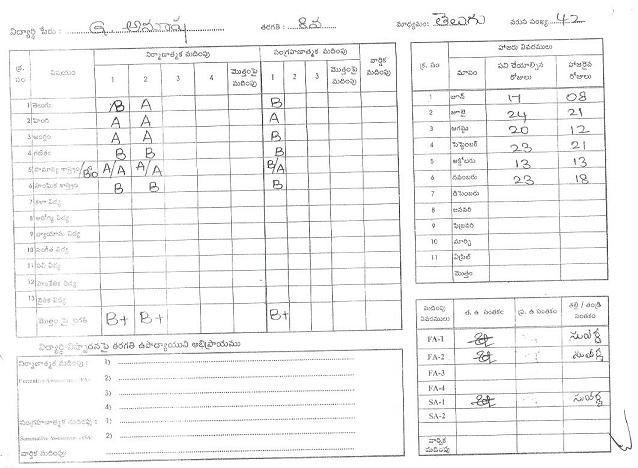 విద్యార్థి పేరు : G. అనూష తరగతి : 8వ మాధ్యమం: తెలుగు వరుస సంఖ్య: 42
క్ర. సం విషయం నిర్మాణాత్మక మదింపు సంగ్రహణాత్మక మదింపు వార్షిక మదింపు
1 2 3 4 మొత్తంపై మదింపు 1 2 3 మొత్తంపై మదింపు
1 తెలుగు B A B
2 హింది A A A
3 ఆంగ్లం A A B
4 గణితం B B B
5 సామాన్య శాస్త్రం A/A A/A B/A
6 సాంఘిక శాస్త్రం B B B
7 కళా విద్య
8 ఆరోగ్య విద్య
9 వ్యాయామ విద్య
10 సంగీత విద్య
11 పని విద్య
12 సాంకేతిక విద్య
13 నైతిక విద్య
మొత్తం పై ప్రగతి B+ B+ B+
విద్యార్థి నిష్పాదనపై తరగతి ఉపాధ్యాయుని అభిప్రాయము
నిర్మాణాత్మక మదింపు : 1)
2)
3)
4)
సంగ్రహణాత్మక మదింపు: 1)
2)
వార్షిక మదింపు
క్ర. సం మాసం హాజరు వివరములు
పని చేయాల్సిన రోజులు హాజరైన రోజులు
1 జూన్ 08
2 జూలై 24 21
3 ఆగష్టు 20 12
4 సెప్టెంబర్ 23 21
5 అక్టోబరు 13 13
6 నవంబరు 23 18
7 డిసెంబరు
8 జనవరి
9 ఫిబ్రవరి
10 మార్చి
11 ఏప్రిల్
మొత్తం
మదింపు వివరములు త. ఉ సంతకం ప్ర. ఉ సంతకం తల్లి / తండ్రి సంతకం
FA-1
FA-2
FA-3
FA-4
SA-1
SA-2
వార్షిక మదింపు